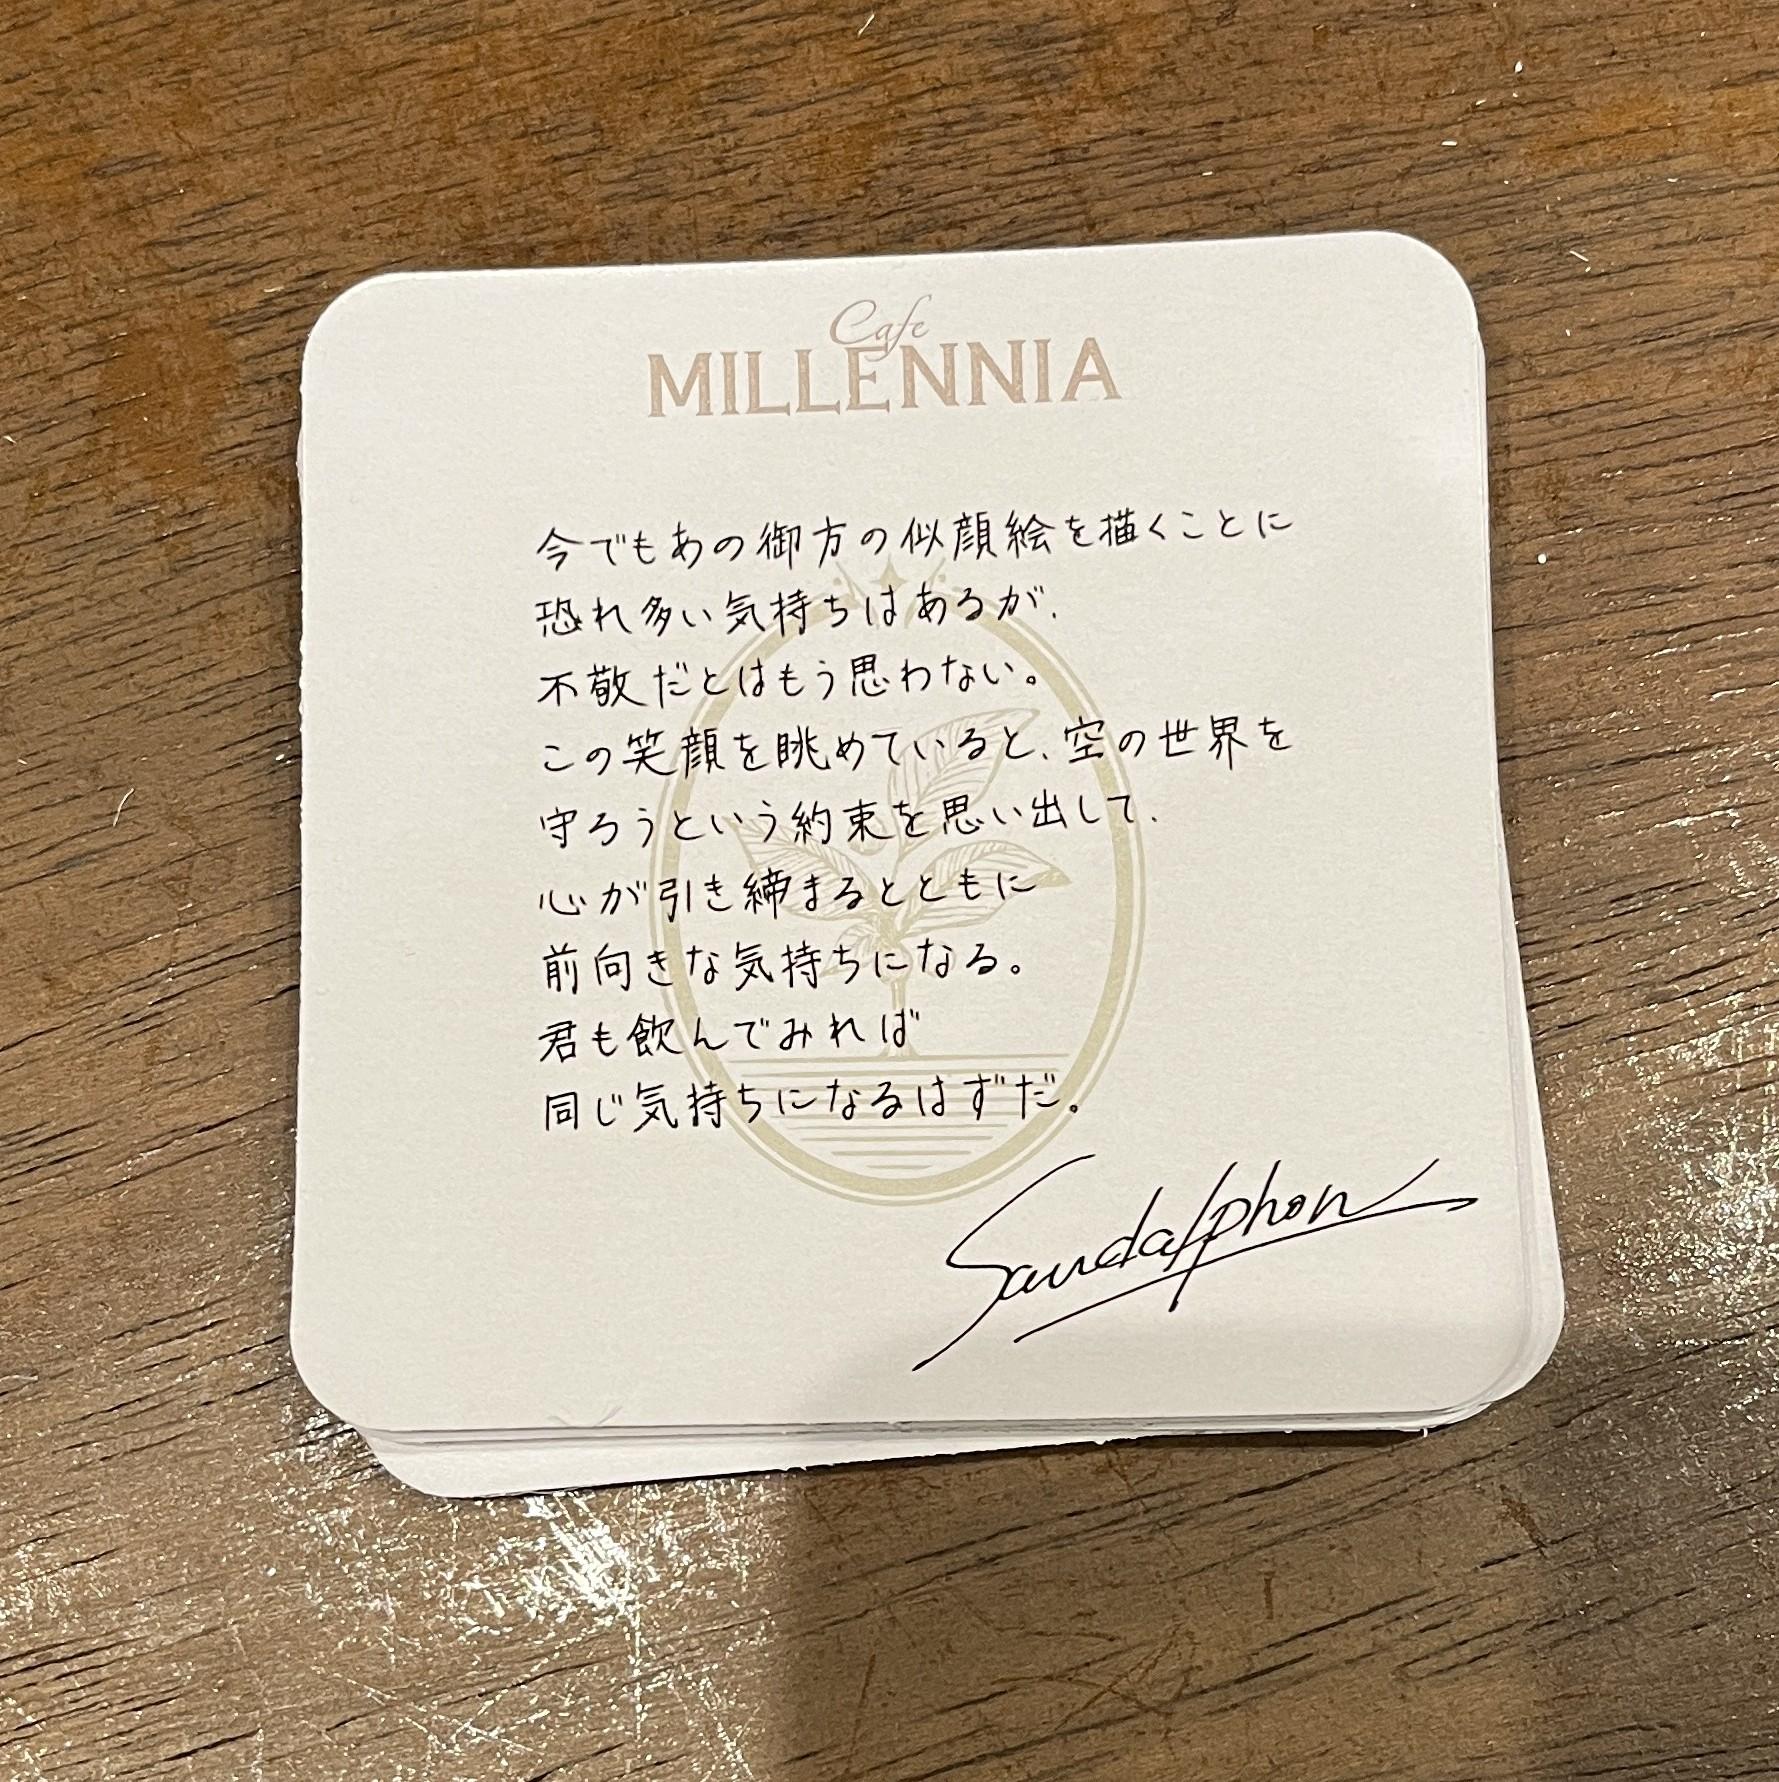 Cafe
MILLENNIA
今でもあの御方の似顔絵を描くことに
恐れ多い気持ちはあるが、
不敬だとはもう思わない。
この笑顔を眺めていると、空の世界を
守ろうという約束を思い出して、
心が引き締まるとともに
前向きな気持ちになる。
君も飲んでみれば
同じ気持ちになるはずだ。
Sandalphon